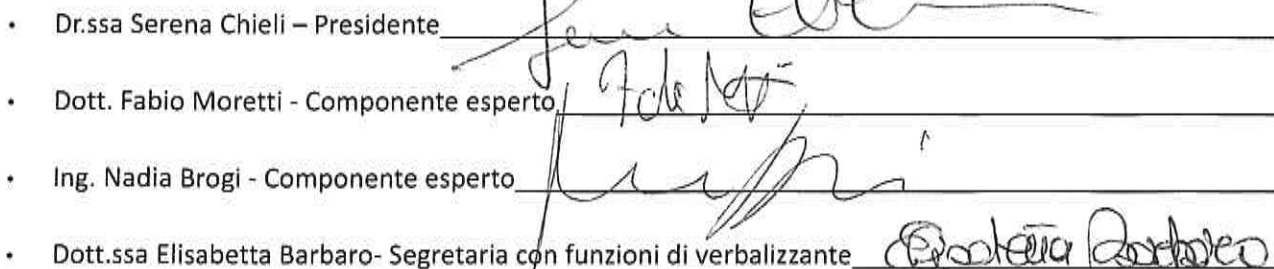 • Dr.ssa Serena Chieli – Presidente
• Dott. Fabio Moretti - Componente esperto
• Ing. Nadia Brogi - Componente esperto
• Dott.ssa Elisabetta Barbaro- Segretaria con funzioni di verbalizzante